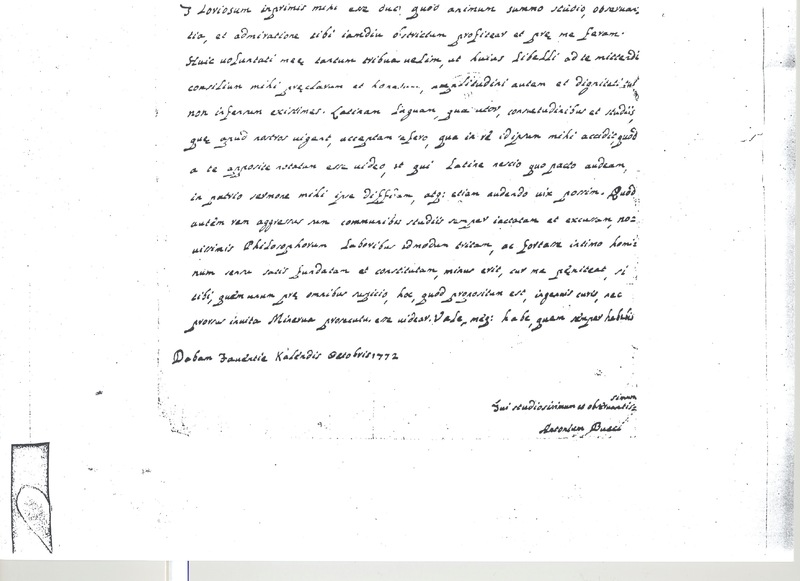 Gloriosum inprimis mihi esse duc: quod animum summo studio, observan,
tia, et admiratione tibi iamdiu obstrictum profitear et prę me feram.
Huic voluntati meę tantum tribua velim, ut huius libelli ad te mittendi
consilium mihi pręclarum et honestum, amplitudini autem et dignitati tuę
non infensum existimes. Latinam linguam, qua utor, consuetudinibus et studiis,
quę apud nostros vigent, acceptam refero, qua in rē id ipsum mihi accidit, quod
a te apposite notatum esse video, ut qui Latine nescio quo pacto audeam,
in patrio sermone mihi ipse diffidam, atq: etiam audendo vix possim. Quod
autem rem aggressus sum communibus studiis semper iactatam et excussam, no=
vissimis Philosophorum laboribus admodum tritam, ac fortasse intimo homi
num sensu satis fundatam et constitutam, minus erit, cur me pęniteat, si
tibi, quem unum prę omnibus suspicio, hoc, quod propositum est, ingenuis curis, nec
prorsus invita Minerva prosecutus esse videar. Vale, meq: habe, quem semper habuisti
Dabam Faventię Kalendis Octobris 1772
Tui studiosissimum et observantis=
simum
Antonium Bucci